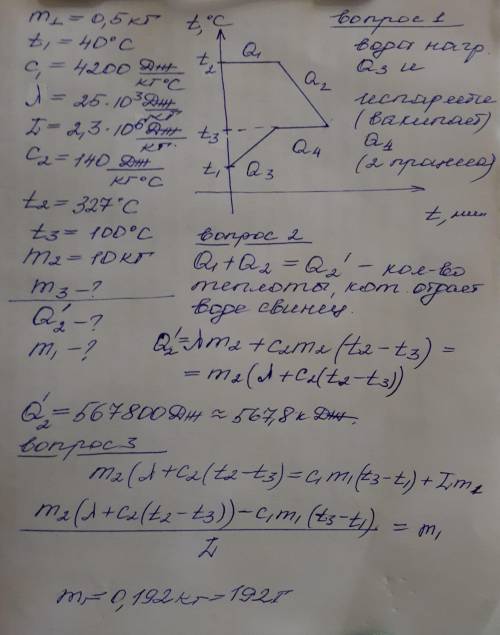 m₁ = 0,5 кг
t₁ = 40°C
c₁ = 4200 Дж/кг°C
λ = 25·10³ Дж/кг
L = 2,3·10⁶ Дж/кг.
c₂ = 140 Дж/кг°C
t₂ = 327°C
t₃ = 100°C
m₂ = 10 кг
m₃ - ?
Q₂' - ?
m₁ - ?
t,°C
t₂
t₃
t₁
Q₁
Q₂
Q₄
Q₃
t, мин
вопрос 1
вода нагр.
Q₃ и
(вакипает)
Q₄
(2 процесса)
вопрос 2
Q₁ + Q₂ = Q₂' - кол-во
теплоты, кот. отдает
воде свинец.
Q₂' = λm₂ + c₂m₂(t₂ - t₃) =
= m₂(λ + c₂(t₂ - t₃))
Q₂' = 567800 Дж ≈ 567,8 кДж.
вопрос 3
m₂(λ + c₂(t₂ - t₃) = c₁m₁(t₃ - t₁) + Lm₁
m₂(λ + c₂(t₂ - t₃)) - c₁m₁(t₃ - t₁)/L = m₁
m₁ = 0,192 кг = 192 г